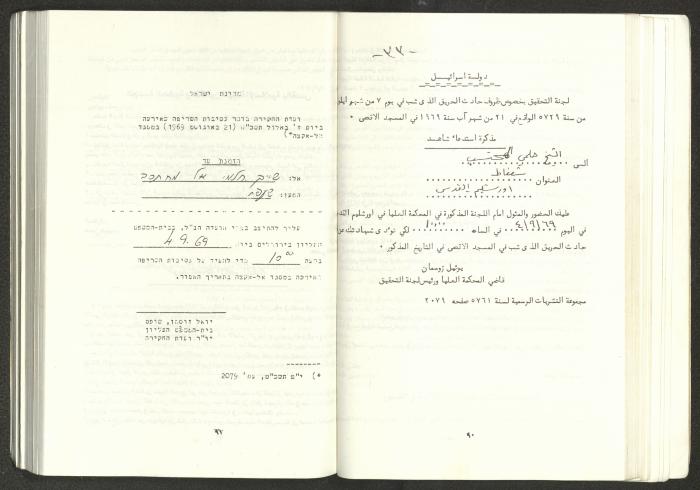 -٣٣-
دولة اسرائيل
لجنة التحقيق بخصوص ظروف حادث الحريق الذى شب في يوم ٧ من شهر ايلول
من سنة ٥٧٢٩ الواقع في ٢١ من شهر آب ١٩٦٩ في المسجد الاقصى ٠
مذكرة استدعاء شاهد
الى الشيخ حلمي المحتسب
العنوان شعفاط
اورشليم القدس
عليك الحضور والمثول امام اللجنة المذكورة في المحكمة العليا في اورشليم القدس
في اليوم ٤/٩/٦٩ في الساعة ١٠٠٠ لكي تؤدى شهادتك عن
حادث الحريق الذى شب في المسجد الاقصى في التاريخ المذكور ٠
يوئيل زوسمان
قاضي المحكمة العليا ورئيس لجنة التحقيق
مجموعة النشريات الرسمية لسنة ٥٧٦١ صفحه ٢٠٧٩
٩٠
מדינת ישראל
ועדת החקירה בדבר נסיבות השריפה שאירעה
ביום ז' באלול תשכ"ט (21 באוגוסט 1969) במסגד
אל-אקצה*)
הזמנת עד
אל: שייך חלמי אל מחתסב
המען: שעפט
עליך להתיצב בפני הועדה הנ"ל, בבית-המשפט
העליון בירושלים ביום 4.9.69
בשעה 10⁰⁰ כדי להעיד על נסיבות השריפה
שאירעה במסגד אל-אקצה בתאריך האמור.
יואל זוסמן, שופט
בית-המשפט העליון
יו"ר ועדת החקירה
*) י"פ תשכ"ט, עמ' 2079
٩٧